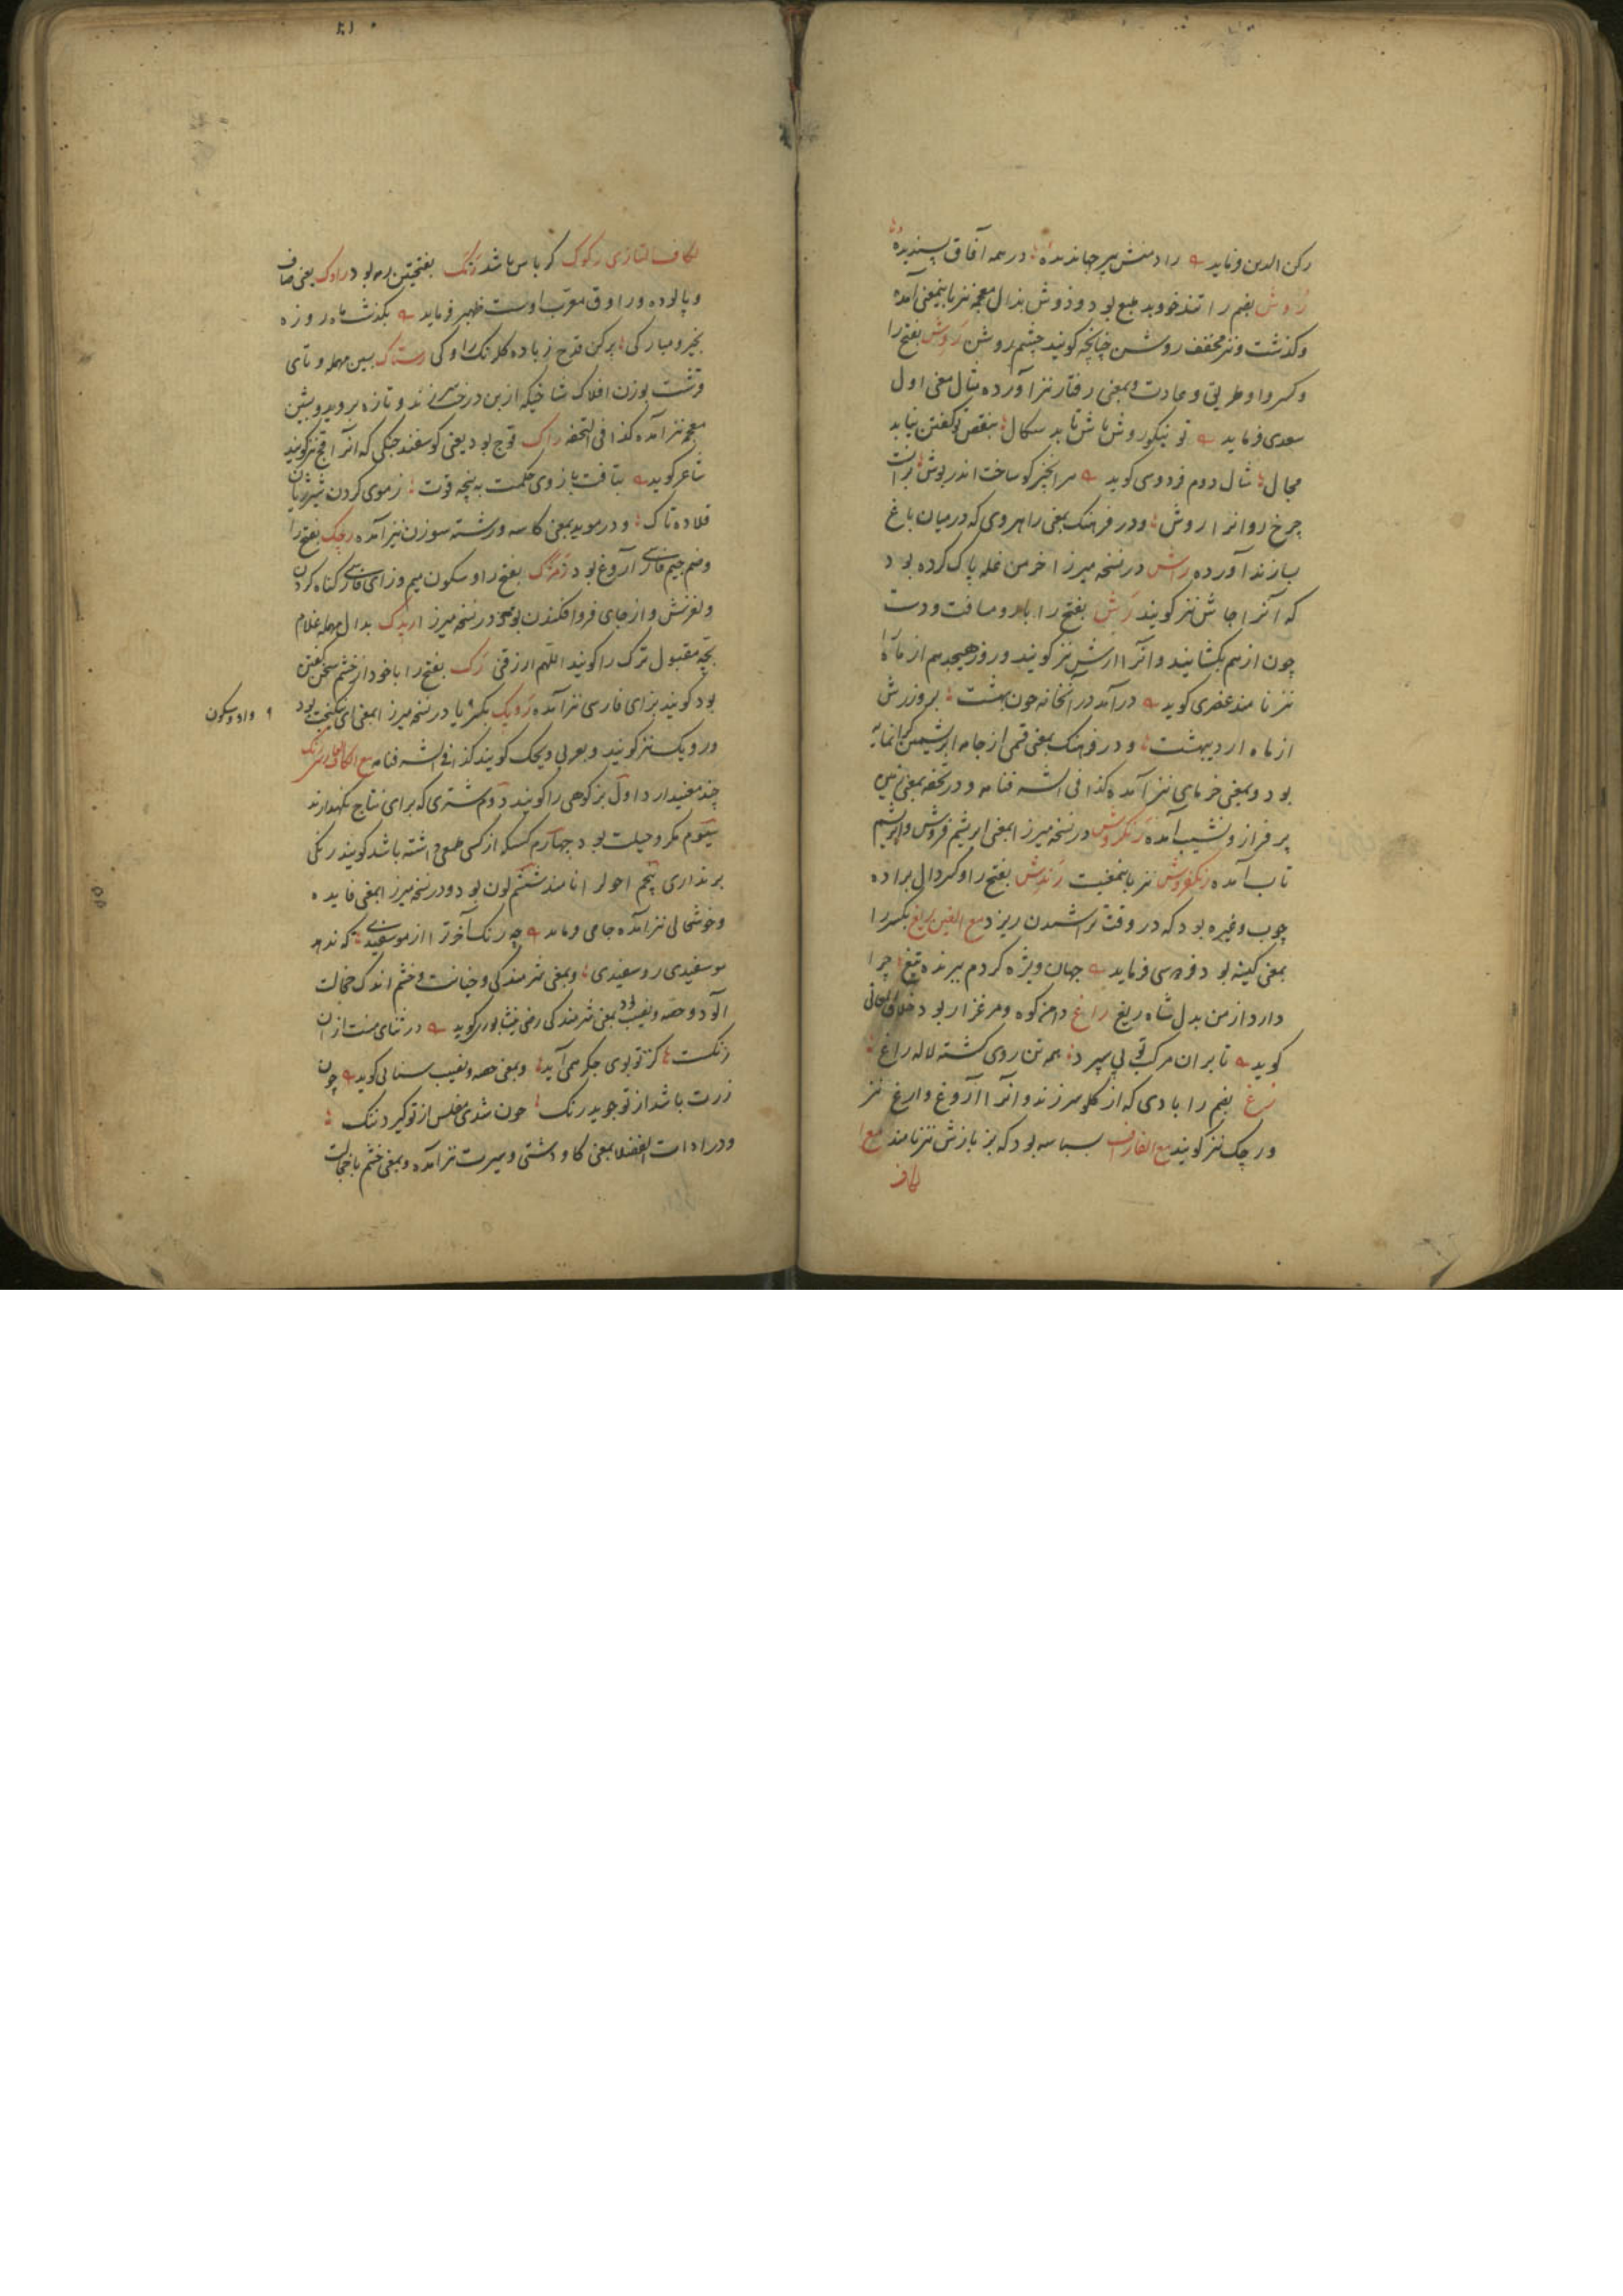 رکن الدین فرماید رادمنش پیر جهاندیده در همه آفاق پسندیده
روش بضم را تند خو و بد طبع بود و ذوش بذال معجمه نیز باینمعنی آمده
و کذشت و نیز مخفف روشن چنانچه کویند چشم روشن روش بفتح را
و کسر واو طریق و عادت و بمعنی رفتار نیز آورده مثال معنی اول
سعدی فرماید تو نیکو روش باش تا بد سکال بنقص تو کفتن نیابد
مجال مثال دوم فردوسی کوید
چرخ روانرا روش و در فرهنک بمعنی راهروی که در میان باغ
سازند آورده راش در نسخه میرزا خرمن غله پاک کرده بود
که آنرا جاش نیز کویند رش بفتح را و مسافت دو دست
چون از هم بکشایند و آنرا ارش نیز کویند و روز هیجدهم از ماه را
نیز نامند عنصری کوید درآمد در آنخانه چون بهشت بروز رش
از ماه اردیبهشت و در فرهنک بمعنی قسمی از جامه ابریشمین کرانمایه
بود و بمعنی خرمای نیز آمده کذا فی الشرفنامه و در تحفه بمعنی زمین
پر فراز و نشیب آمده رنکروش در نسخه میرزا بمعنی ابریشم فروش و ابریشم
تاب آمده رنکفروش نیز باینمعنیست رندش بفتح را و کسر دال براده
چوب و غیره بود که در وقت تراشیدن ریزد مع الغین ریغ بکسر را
بمعنی کینه بود فردوسی فرماید جهان ویژه کردم ببرنده تیغ چرا
دارد از من بدل شاه ریغ راغ دامن کوه و مرغزار بود خلاق المعانی
کوید تا بران مرکب تو پی سپرد همه تن روی کشته لاله راغ
رغ بضم را بادی که از کلو برزند و آنرا آروغ و ارغ نیز
و رجک نیز کویند مع الفا رف بسباسه بود که بزبازش نیز نامند مع ا
لکاف
لکاف التازی رکوک کرباس باشد رنک بفتحتین بود راوک یعنی صاف
و پالوده و راوق معرب اوست ظهیر فرماید بکذشت ماه روزه
بخیر و مبارکی پر کن قدح ز باده کلرنک راوکی رستاک بسین مهمله و تای
قرشت بوزن افلاک شاخیکه از بن درخت زند و تازه بروید و بشین
معجمه نیز آمده کذا فی التحفه راک قوچ بود یعنی کوسفند جنکی که آنرا قچ نیز کویند
شاعر کوید بتافت بازوی حکمت به پنجه قوت ز موی کردن شیر ژیان
قلاده تاک و در موید بمعنی کاسه و رشته سوزن نیز آمده رجک بفتح را
و ضم جیم فارسی آروغ بود رمژک بفتح را و سکون میم و زای فارسی کناه کردن
و لغزش و از جای فرو افکندن بود در نسخه میرزا ریدک بدال مهمله غلام
بچه مقبول ترک را کویند اللهم ارزقنی رک بفتح را با خود از خشم سخن کفتن
بود کویند بزای فارسی نیز آمده رویک بکسر یا در نسخه میرزا بمعنی
و واو و سکون
و رویک نیز کویند و بعربی کویند کذا فی الشرفنامه مع الکاف الفارسی رنک
چند معنیدارد اول بز کوهی را کویند دوم شتری که برای نتاج نکهدارند
سیوم مکر و حیلت بود چهارم کسیکه از کسی طمعی داشته باشد کویند رنکی
برنداری پنجم احول را نامند ششم لون بود و در نسخه میرزا بمعنی فایده
و خوشحالی نیز آمده جامی فرماید چه رنک آخر ترا از مو سفیدی که ندهد
مو سفیدی رو سفیدی و بمعنی شرمندکی و خیانت و خشم اندک خجالت
آلود و حصه و نصیب بود بمعنی شرمندکی رضی نیشابوری کوید در ثنای منت ازان
رنکست کز تو بوی جکر همی آید و بمعنی حصه و نصیب سنائی کوید چون
زرت باشد از تو جوید رنک چون شدی مفلس از تو کیرد ننک
و در ادات الفضلا بمعنی کاو دشتی و سیرت نیز آمده و بمعنی خشم با خجالت